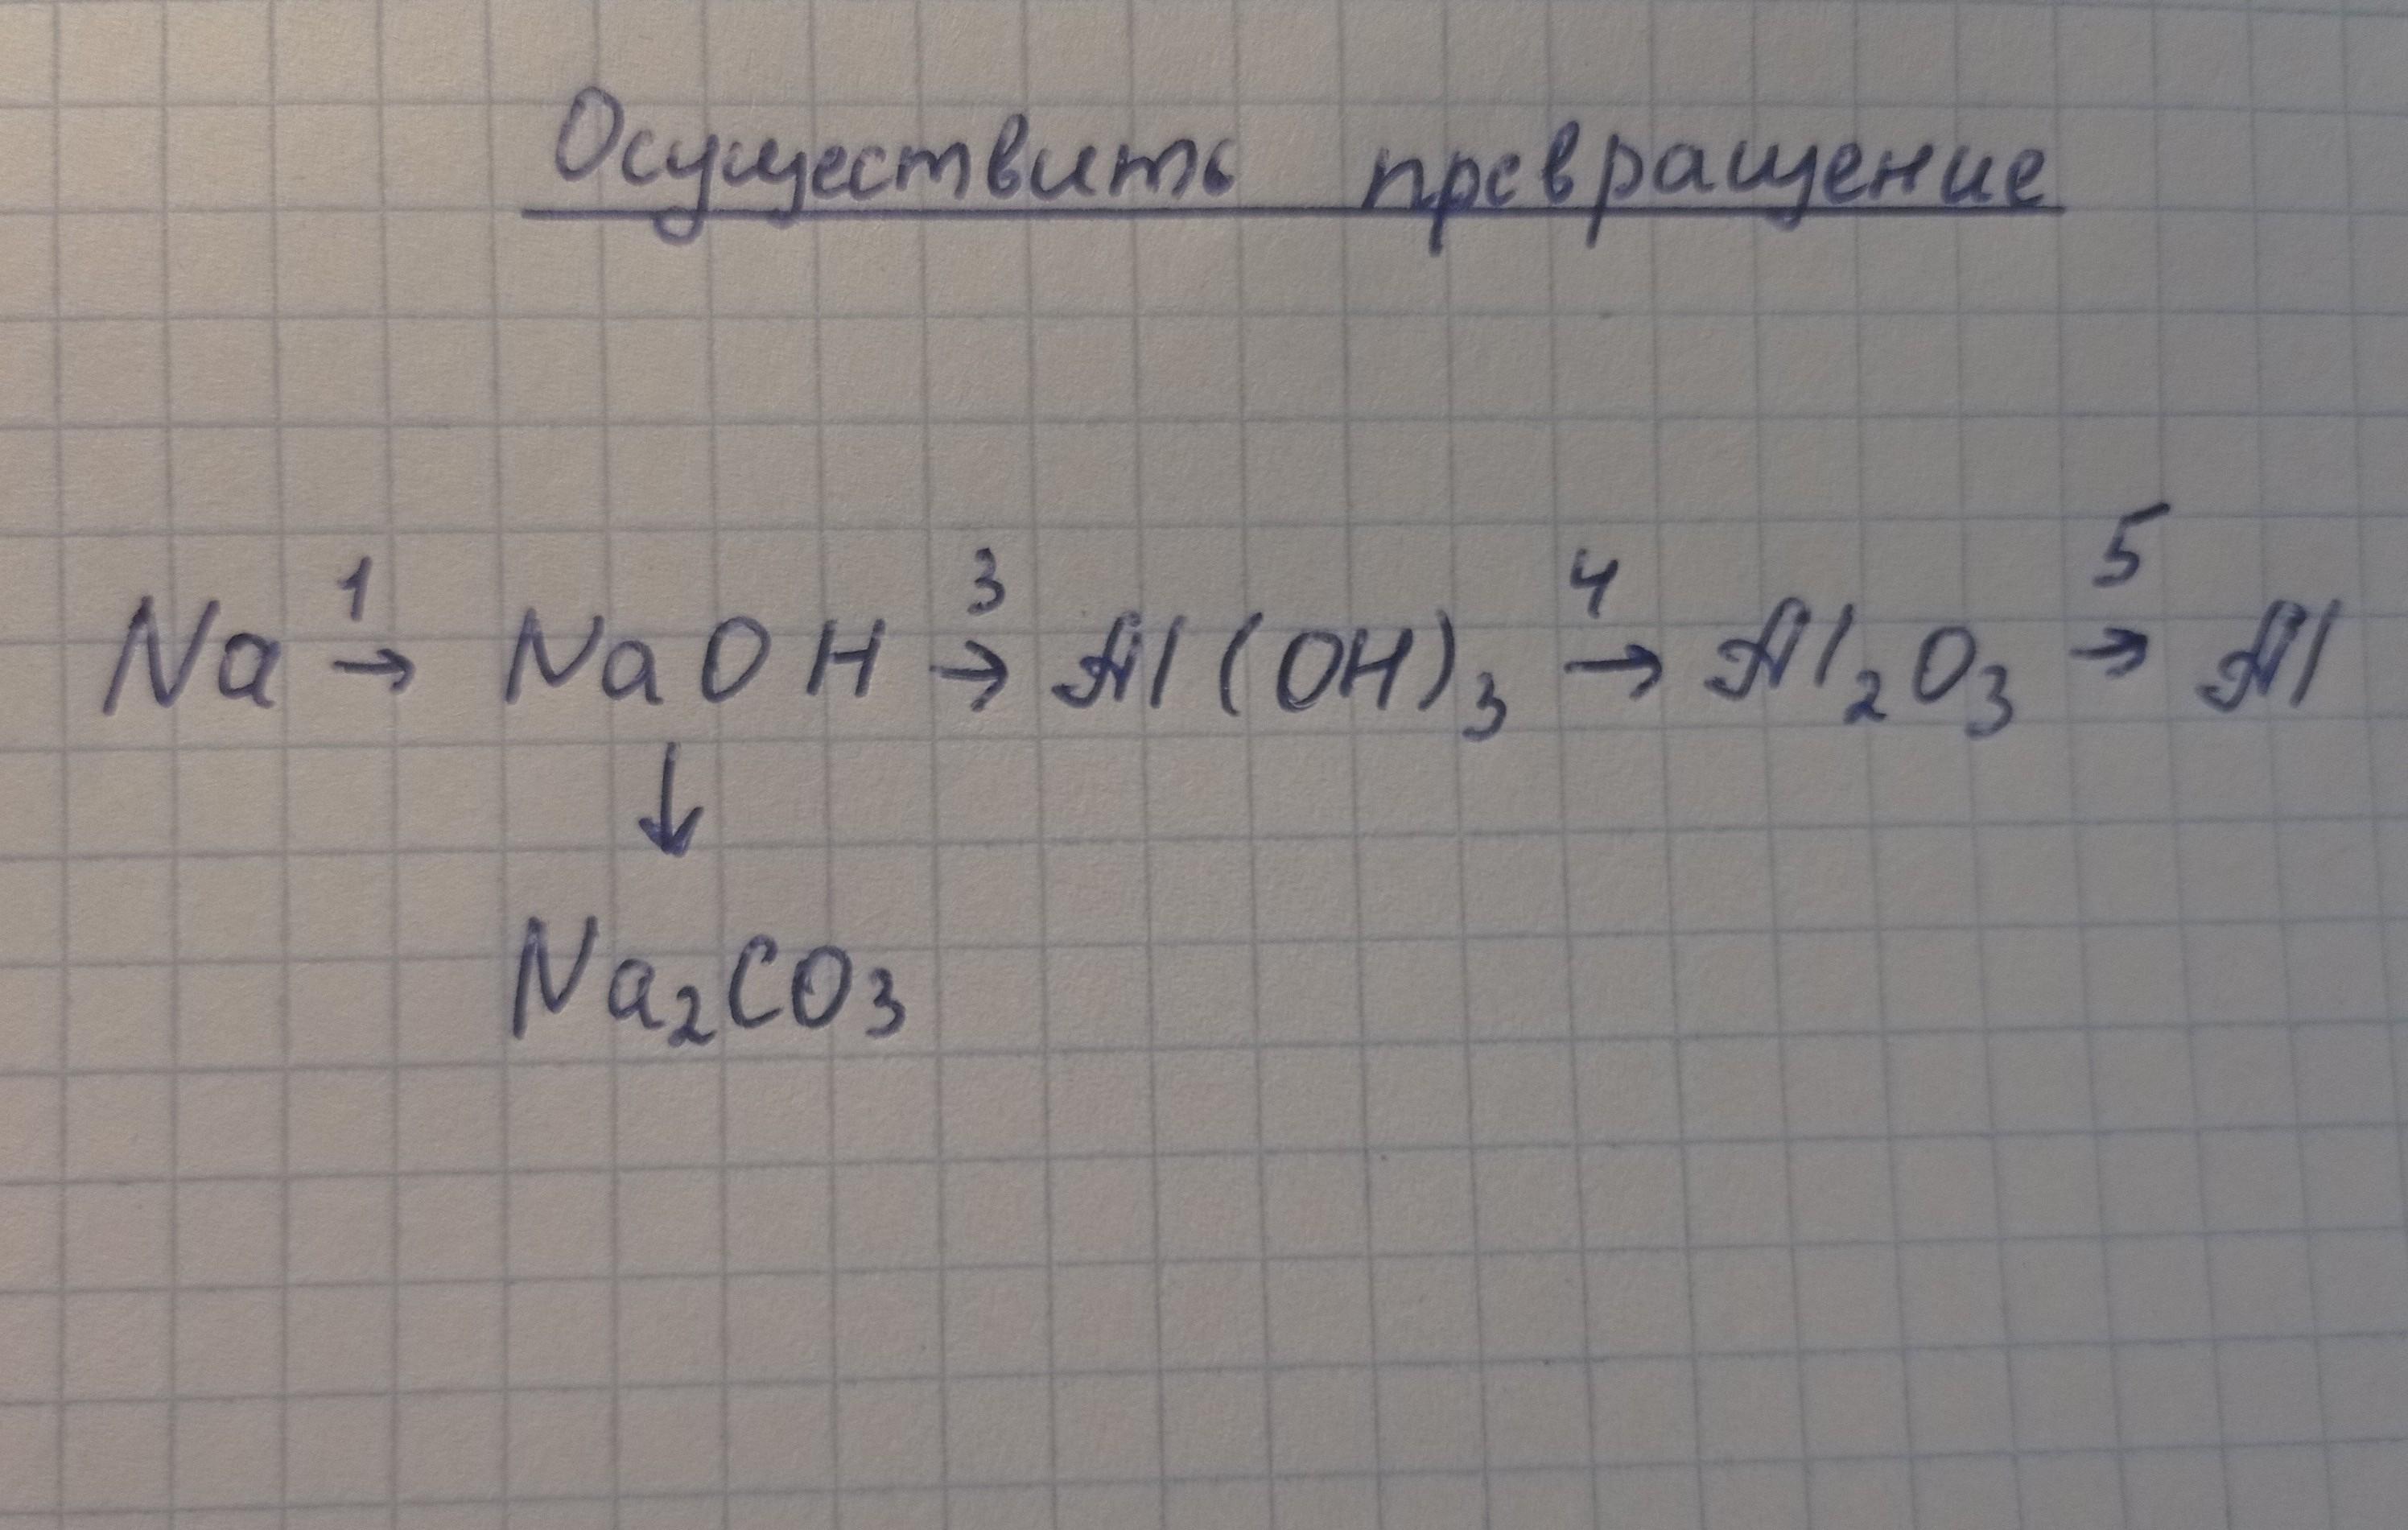 Осуществить превращение
Na 1→ NaOH 3→ Al(OH)₃ 4→ Al₂O₃ 5→ Al
↓
Na₂CO₃